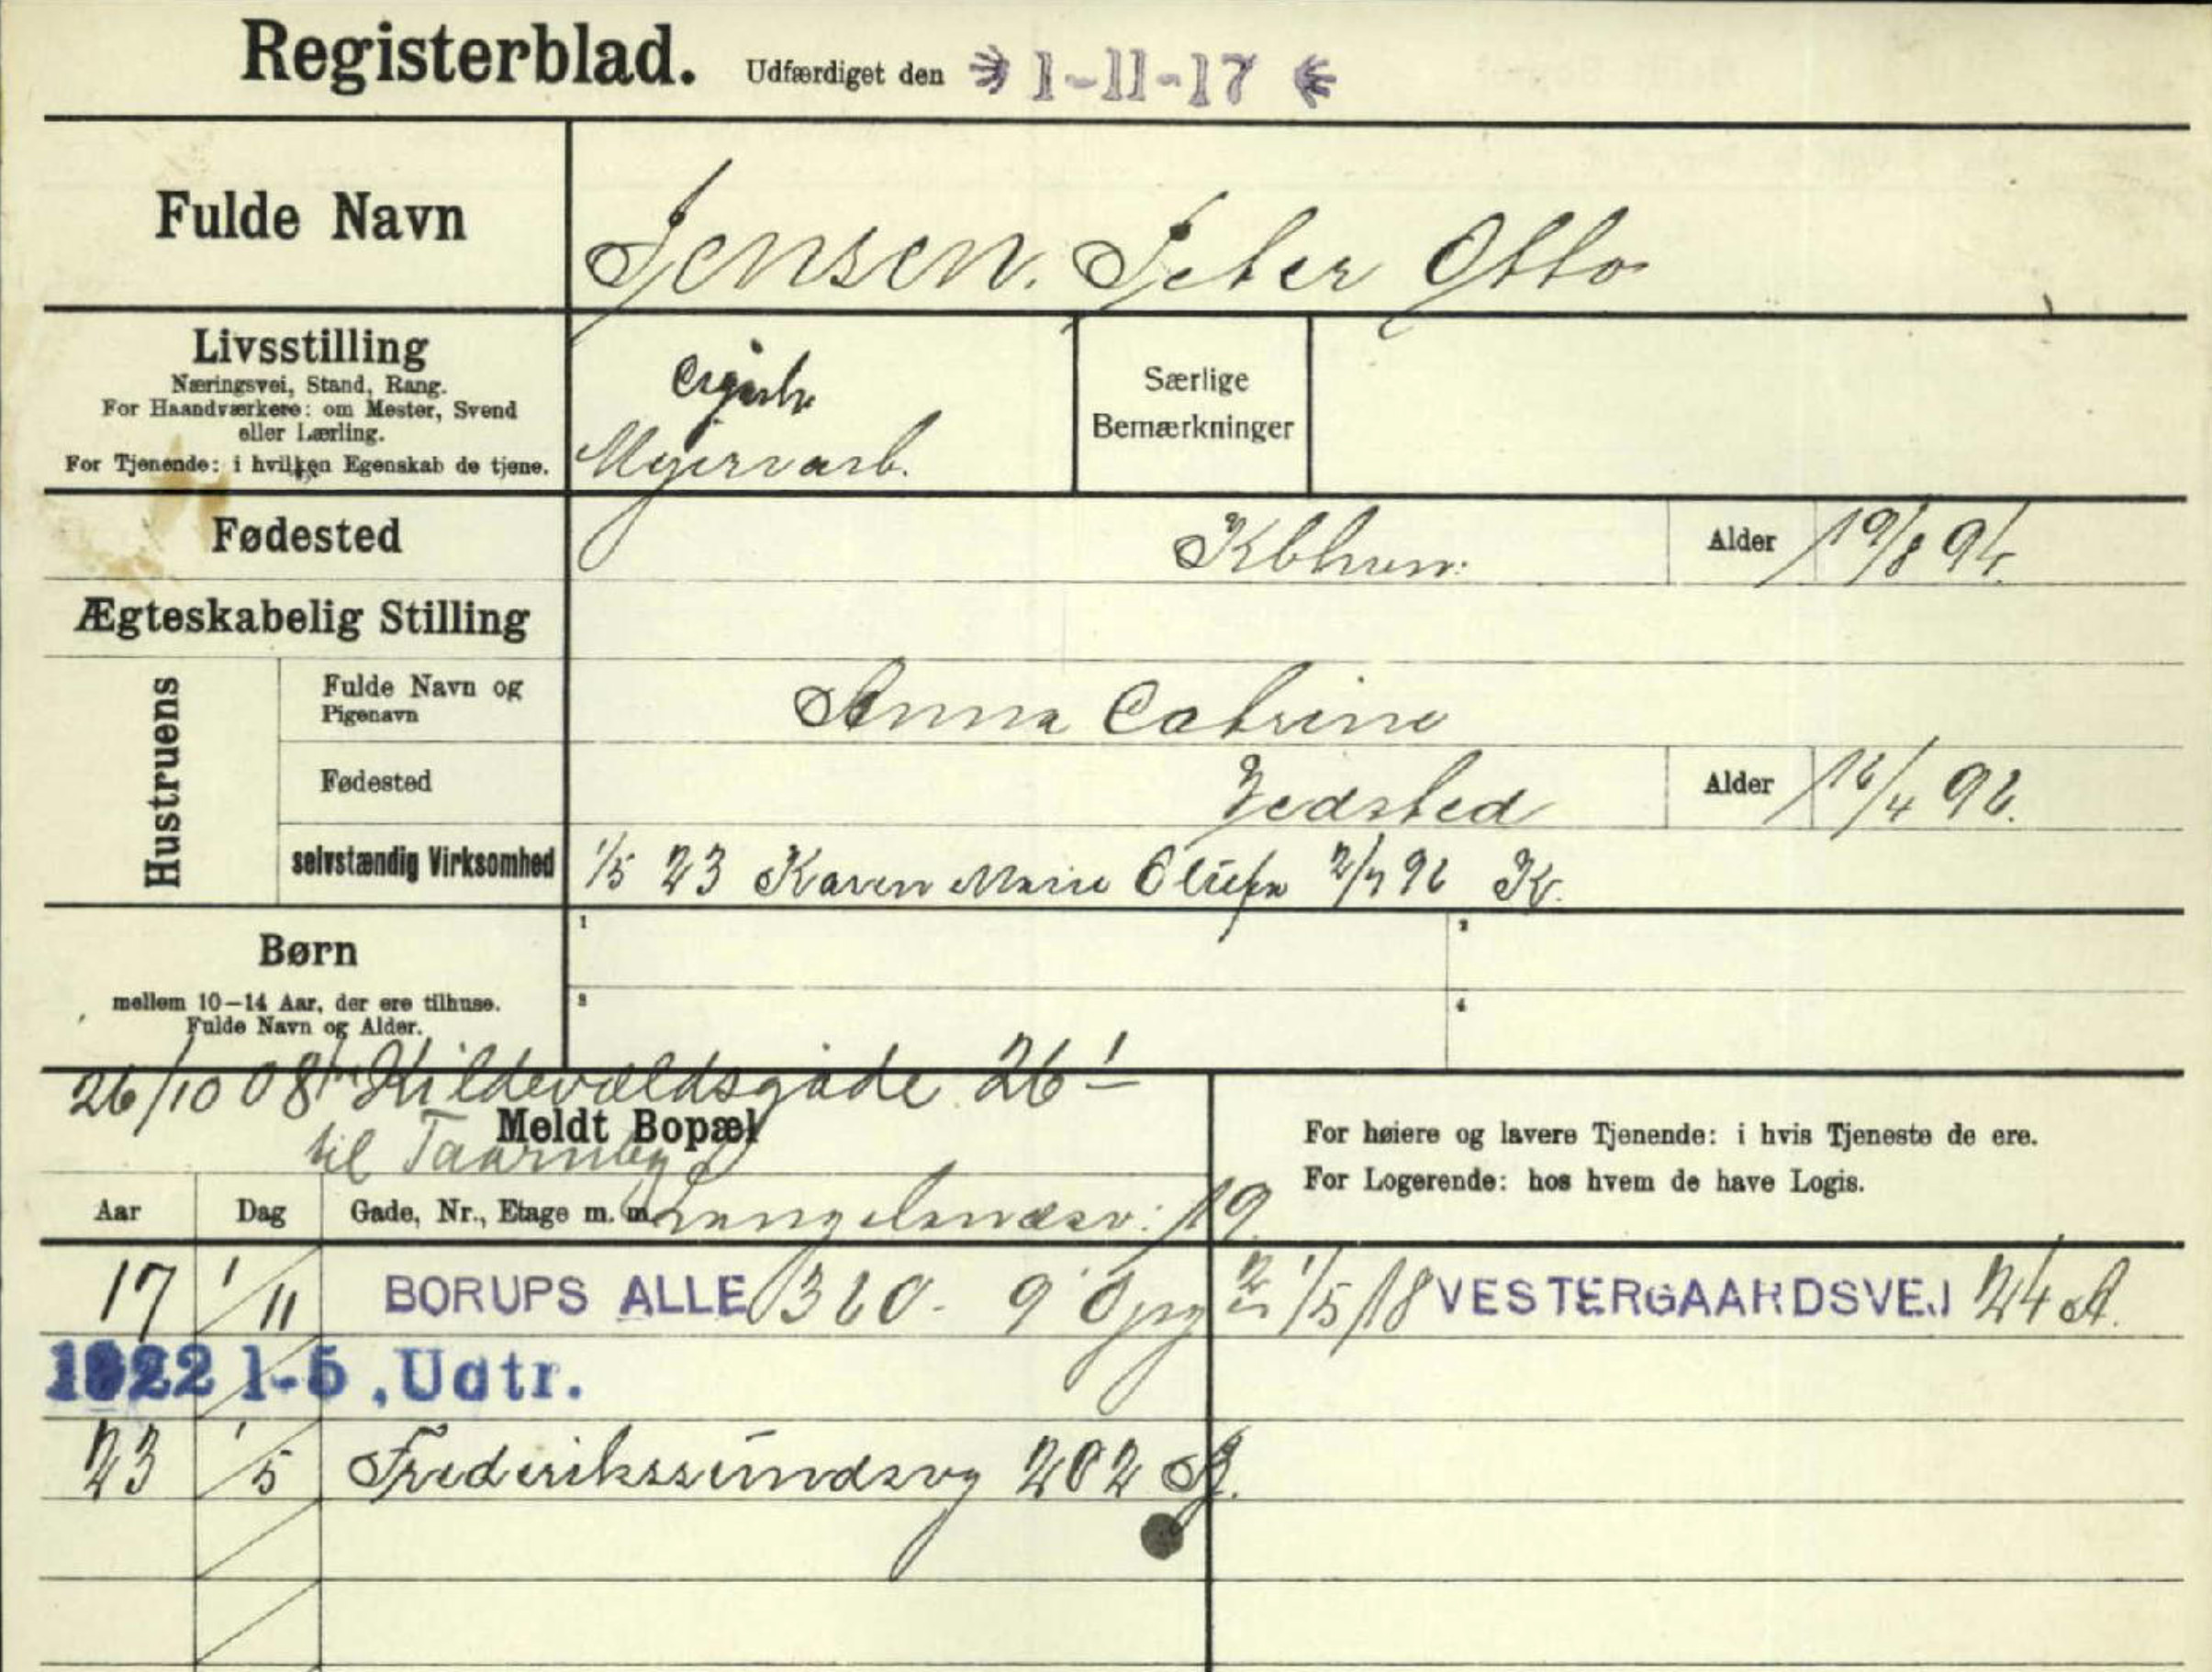 Registerblad. Udfærdiget den 1-11-17
Fulde Navn
Jensen. Peter Otto
Livsstilling
Næringsvei, Stand, Rang.
For Haandværkere: om Mester, Svend
eller Lærling.
For Tjenende: i hvilken Egenskab de tjene.
Mejeriarb.
Særlige
Bemærkninger
Fødested
Kbhvn.
Alder 19/8 94.
Ægteskabelig Stilling
Hustruens
Fulde Navn og
Pigenavn
Anna Catrine
Fødested
Vedsted
Alder 16/4 92.
selvstændig Virksomhed
1/5 23 Karen Marie 92 K.
Børn
mellem 10-14 Aar, der ere tilhuse.
Fulde Navn og Alder.
1
2
3
4
26/10 08 Kildevældsgade 26 1
Meldt Bopæl
til Taarnby
For høiere og lavere Tjenende: i hvis Tjeneste de ere.
For Logerende: hos hvem de have Logis.
Aar Dag Gade, Nr., Etage m. m.
Langelandsv. 19.
17 1/11 BORUPS ALLE 9 Opg 1/5/18 VESTERGAARDSVEJ 24 A.
1922 1-5. Udtr.
23 1/5 Frederikssundsvg 202 B.